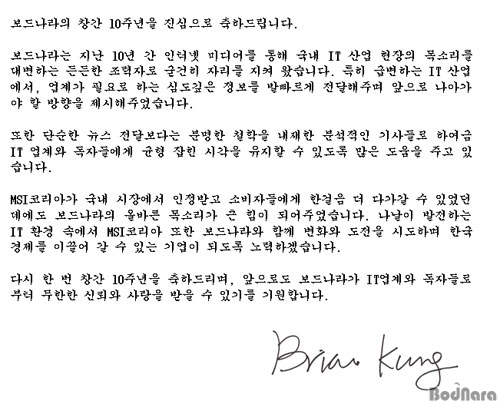 보드나라의 창간 10주년을 진심으로 축하드립니다.
보드나라는 지난 10년 간 인터넷 미디어를 통해 국내 IT 산업 현장의 목소리를
대변하는 든든한 조력자로 굳건히 자리를 지켜 왔습니다. 특히 급변하는 IT 산업
에서, 업계가 필요로 하는 심도깊은 정보를 발빠르게 전달해주며 앞으로 나아가
야 할 방향을 제시해주었습니다.
또한 단순한 뉴스 전달보다는 분명한 철학을 내재한 분석적인 기사들로 하여금
IT 업계와 독자들에게 균형 잡힌 시각을 유지할 수 있도록 많은 도움을 주고 있
습니다.
MSI코리아가 국내 시장에서 인정받고 소비자들에게 한걸음 더 다가갈 수 있었던
데에도 보드나라의 올바른 목소리가 큰 힘이 되어주었습니다. 나날이 발전하는
IT 환경 속에서 MSI코리아 또한 보드나라와 함께 변화와 도전을 시도하며 한국
경제를 이끌어 갈 수 있는 기업이 되도록 노력하겠습니다.
다시 한 번 창간 10주년을 축하드리며, 앞으로도 보드나라가 IT업계와 독자들로
부터 무한한 신뢰와 사랑을 받을 수 있기를 기원합니다.
Brian Kung
BodNara